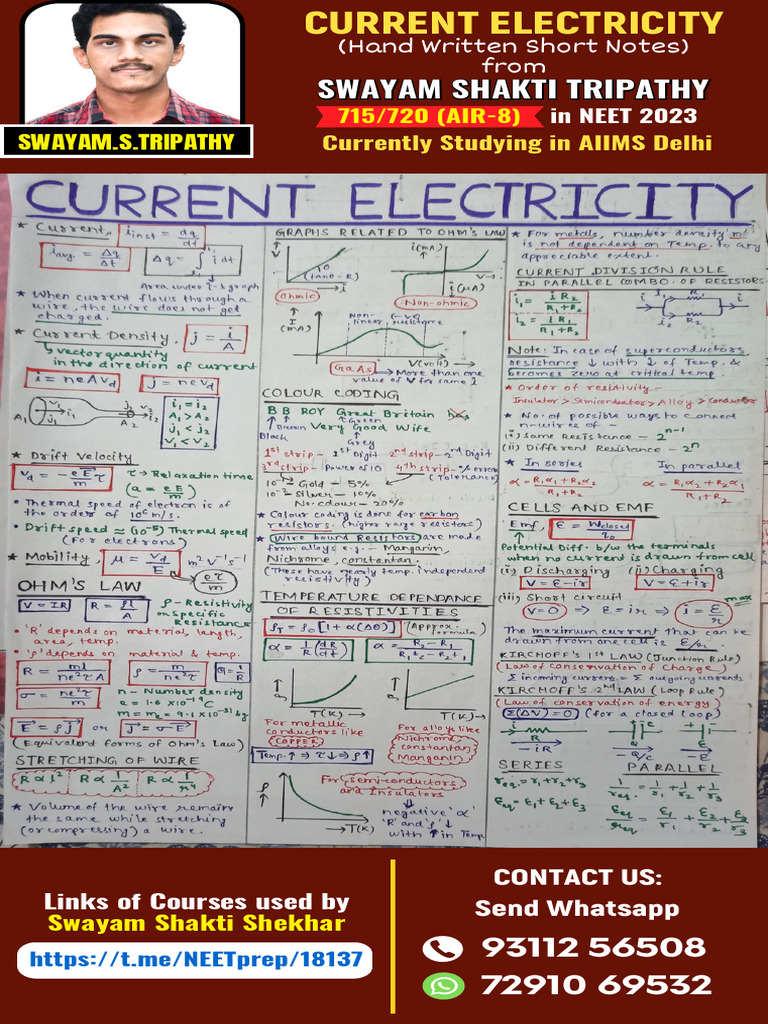 CURRENT ELECTRICITY
(Hand Written Short Notes)
from
SWAYAM SHAKTI TRIPATHY
715/720 (AIR-8) in NEET 2023
Currently Studying in AIIMS Delhi
SWAYAM.S.TRIPATHY
CURRENT ELECTRICITY
* Current, i inst = dq/dt
i avg. = ΔQ/Δt
Δq = ∫ i dt
Area under i-t graph
* When current flows through a
wire, the wire does not get
charged.
* Current Density, j = i/A
vector quantity
in the direction of current
i = neAVd
j = nevd
A1
i1
A2
i2
i1 = i2
A1 > A2
j1 < j2
V1 < V2
* Drift Velocity
Vd = -eE→/m τ
τ → Relaxation time
(a = eE/m)
• Thermal speed of electron is of
the order of 10⁶ m/s.
• Drift speed ≈ (10⁻⁵) Thermal speed
(For electrons)
* Mobility, μ = vd/E
m² V⁻¹ s⁻¹
eτ/m
OHM'S LAW
V = IR
R = ρl/A
ρ - Resistivity
or Specific
Resistance
• 'R' depends on material, length,
area, temp.
• 'ρ' depends on material & temp.
R = ml/ne²τA
ρ = m/ne²τ
G = 1/R
σ = ne²τ/m
n - Number density
e = 1.6 × 10⁻¹⁹ C
m = me = 9.1 × 10⁻³¹ kg
E→ = ρJ→ or J→ = σE→
(Equivalent forms of Ohm's Law)
STRETCHING OF WIRE
R ∝ l² R ∝ 1/A² R ∝ 1/r⁴
* Volume of the wire remains
the same while stretching
(or compressing) a wire.
GRAPHS RELATED TO OHM'S LAW
V
(tanθ = R)
i
Ohmic
i (mA)
V
i (μA)
Non-ohmic
I
(mA)
Non-
linear
(-ve)
resistance
V (volt)
GaAs
→ More than one
value of V for same I
COLOUR CODING
B B ROY Great Britain has
Green
Brown Very Good Wife
Black
Grey
1st strip - 1st Digit 2nd strip - 2nd Digit
3rd strip - Power of 10 4th strip - % error
(Tolerance)
10⁻¹ Gold - 5%
10⁻² Silver - 10%
No colour - 20%
* Colour coding is done for carbon
resistors. (higher range resistors)
* Wire bound Resistors are made
from alloys e.g. - Manganin,
Nichrome, constantan.
(These have nearly temp. independent
resistivity)
TEMPERATURE DEPENDANCE
OF RESISTIVITIES
ρT = ρ0 [1 + α(Δθ)] (Approx. formula)
α = 1/R (dR/dt)
ρ
T(K)
For metallic
conductors like
COPPER
ρ
T(K)
For alloys like
Nichrome
constantan
Manganin
Temp. ↑ ⇒ τ↓ ⇒ ρ↑
ρ
T(K)
For semi-conductors
and Insulators
negative 'α'
'R' and 'ρ' ↓
with ↑ in Temp.
* For metals, number density 'n'
is not dependent on Temp. to any
appreciable extent.
CURRENT DIVISION RULE
IN PARALLEL COMBO. OF RESISTORS
i1 = i R2/R1+R2
i2 = i R1/R1+R2
Note: In case of superconductors,
resistance ↓ with ↓ of Temp. &
becomes zero at critical temp.
* Order of resistivity -
Insulator > Semiconductor > Alloy > Conductor
* No. of possible ways to connect
n-wires of -
(i) Same Resistance - 2ⁿ⁻¹
(ii) Different Resistance - 2ⁿ
* In series
In parallel
α = R1α1 + R2α2/R1 + R2
α = R1α2 + R2α1/R1 + R2
CELLS AND EMF
Emf, ε = Wclosed/q0
Potential Diff. b/w the terminals
when no current is drawn from cell
(i) Discharging (ii) Charging
V = ε - ir
V = ε + ir
(iii) Short circuit
V = 0 ⇒ ε = ir ⇒ i = ε/r max
The maximum current that can be
drawn from one cell is ε/r.
KIRCHOFF'S 1st LAW (Junction Rule)
(Law of conservation of Charge)
Σ incoming current = Σ outgoing currents
KIRCHOFF'S 2nd LAW (Loop Rule)
(Law of conservation of energy)
Σ(ΔV) = 0 (for a closed loop)
-iR
-Q/C
-ε
SERIES
PARALLEL
req. = r1 + r2 + r3
1/req. = 1/r1 + 1/r2 + 1/r3
εeq. = ε1 + ε2 + ε3
εeq/req. = ε1/r1 + ε2/r2 + ε3/r3
Links of Courses used by
Swayam Shakti Shekhar
https://t.me/NEETprep/18137
CONTACT US:
Send Whatsapp
93112 56508
72910 69532